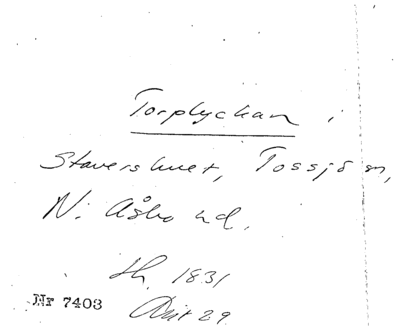 Torplyckan i
Stavershult, Tossjö sn,
N. Åsbo hd,
1831
Nr 7403
29